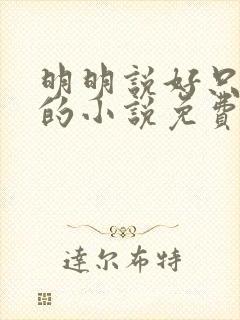 明明說好只
的小說免費
達尔布特